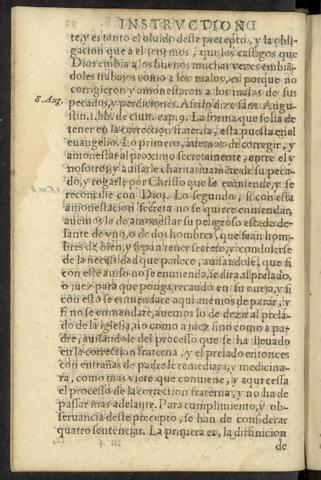 INSTRVCTION
te, y es tanto el oluido deste precepto, y la obli-
gacion que a el tenemos, que los castigos que
Dios embia a los buenos muchas vezes embiã-
doles trabajos como a los malos, es porque no
corrigieron y amonestaron a los malos de sus
S. Aug.
pecados, y perdiciones. Assi lo dize sant Augu-
stin. 1. lib. de ciuit. cap. 9. La forma que se ha de
tener en la correction fraterna, esta puesta en el
euangelio. Lo primero, auemos de corregir, y
amonestar al proximo secretamente, entre el y
nosotros, y auisarle charitatiuamẽte de su peca-
do, y rogarle por Christo que se enmiende, y se
reconcilie con Dios. Lo segundo, si con esta
amonestacion secreta no se quiere enmendar,
auemos lo de amonestar su peligroso estado de-
lante de vno, o de dos hombres, que sean hom-
bres de bien, y sepan tener secreto, y condolerse
de la necessidad que padece, auisandole, que si
con este auiso no se enmienda, se dira al prelado,
o juez para que ponga recaudo en su oueja, y si
con esto se enmendare aqui auemos de parar, y
si no se enmendare, auemos lo de dezir al prela-
do de la iglesia, no como a juez sino como a pa-
dre, auisandole del processo que se ha lleuado
en la correction fraterna, y el prelado entonces
con entrañas de padre le remediara, y medicina-
ra, como mas viere que conuiene, y aqui cessa
el processo de la correction fraterna, y no ha de
passar mas adelante. Para cumplimiento, y ob-
seruancia deste precepto, se han de considerar
quatro sentencias. La primera es, la diffinicion
de